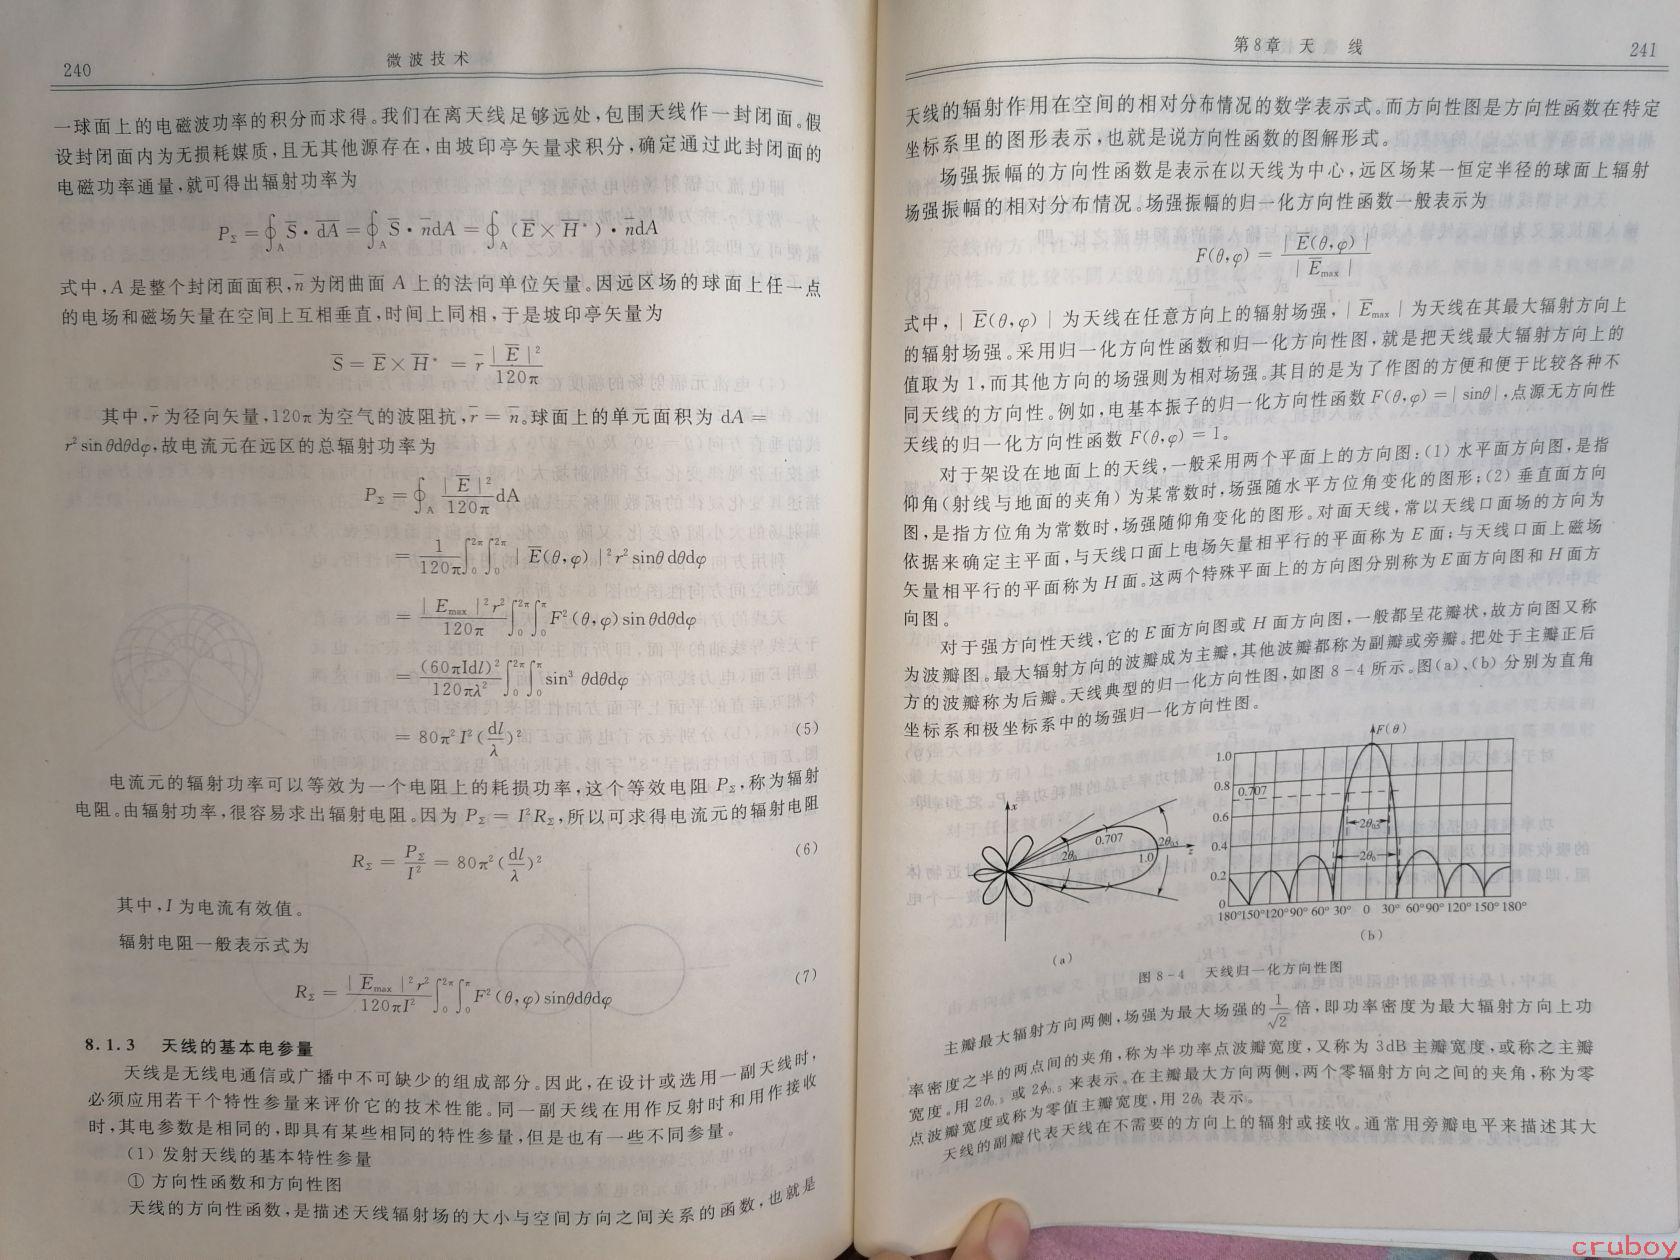 240
微波技术
一球面上的电磁波功率的积分而求得。我们在离天线足够远处,包围天线作一封闭面。假
设封闭面内为无损耗媒质,且无其他源存在,由坡印亭矢量求积分,确定通过此封闭面的
电磁功率通量,就可得出辐射功率为
P_Σ = ∮_A S̄·dĀ = ∮_A S̄·n̄dA = ∮_A (Ē×H̄*)·n̄dA
式中,A 是整个封闭面面积,n̄ 为闭曲面 A 上的法向单位矢量。因远区场的球面上任一点
的电场和磁场矢量在空间上互相垂直,时间上同相,于是坡印亭矢量为
S̄ = Ē×H̄* = r̄ |Ē|²/120π
其中,r̄ 为径向矢量,120π 为空气的波阻抗,r̄ = n̄。球面上的单元面积为 dA =
r² sinθdθdφ,故电流元在远区的总辐射功率为
P_Σ = ∮_A |Ē|²/120π dA
= 1/120π ∫₀^2π ∫₀^2π |Ē(θ,φ)|² r² sinθ dθdφ
= |Ē_max|² r²/120π ∫₀^2π ∫₀^π F²(θ,φ) sinθdθdφ
= (60πIdl)²/120πλ² ∫₀^2π ∫₀^π sin³ θdθdφ
= 80π²I²(dl/λ)² (5)
电流元的辐射功率可以等效为一个电阻上的耗损功率,这个等效电阻 P_Σ,称为辐射
电阻。由辐射功率,很容易求出辐射电阻。因为 P_Σ = I²R_Σ,所以可求得电流元的辐射电阻
R_Σ = P_Σ/I² = 80π²(dl/λ)² (6)
其中,I 为电流有效值。
辐射电阻一般表示式为
R_Σ = |Ē_max|² r²/120πI² ∫₀^2π ∫₀^π F²(θ,φ)sinθdθdφ (7)
8.1.3 天线的基本电参量
天线是无线电通信或广播中不可缺少的组成部分。因此,在设计或选用一副天线时,
必须应用若干个特性参量来评价它的技术性能。同一副天线在用作反射时和用作接收
时,其电参数是相同的,即具有某些相同的特性参量,但是也有一些不同参量。
(1) 发射天线的基本特性参量
① 方向性函数和方向性图
天线的方向性函数,是描述天线辐射场的大小与空间方向之间关系的函数,也就是
第8章 天 线
241
天线的辐射作用在空间的相对分布情况的数学表示式。而方向性图是方向性函数在特定
坐标系里的图形表示,也就是说方向性函数的图解形式。
场强振幅的方向性函数是表示在以天线为中心,远区场某一恒定半径的球面上辐射
场强振幅的相对分布情况。场强振幅的归一化方向性函数一般表示为
F(θ,φ) = |Ē(θ,φ)|/|Ē_max|
式中,|Ē(θ,φ)| 为天线在任意方向上的辐射场强,|Ē_max| 为天线在其最大辐射方向上
的辐射场强。采用归一化方向性函数和归一化方向性图,就是把天线最大辐射方向上的
值取为 1,而其他方向的场强则为相对场强。其目的是为了作图的方便和便于比较各种不
同天线的方向性。例如,电基本振子的归一化方向性函数 F(θ,φ)=|sinθ|,点源无方向性
天线的归一化方向性函数 F(θ,φ) = 1。
对于架设在地面上的天线,一般采用两个平面上的方向图:(1) 水平面方向图,是指
仰角(射线与地面的夹角) 为某常数时,场强随水平方位角变化的图形;(2) 垂直面方向
图,是指方位角为常数时,场强随仰角变化的图形。对面天线,常以天线口面场的方向为
依据来确定主平面,与天线口面上电场矢量相平行的平面称为 E 面;与天线口面上磁场
矢量相平行的平面称为 H 面。这两个特殊平面上的方向图分别称为 E 面方向图和 H 面方
向图。
对于强方向性天线,它的 E 面方向图或 H 面方向图,一般都呈花瓣状,故方向图又称
为波瓣图。最大辐射方向的波瓣成为主瓣,其他波瓣都称为副瓣或旁瓣。把处于主瓣正后
方的波瓣称为后瓣。天线典型的归一化方向性图,如图 8-4 所示。图(a)、(b) 分别为直角
坐标系和极坐标系中的场强归一化方向性图。
x
0.707
2θ₀
1.0
2θ₀.₅
z
(a)
F(θ)
1.0
0.8
0.707
0.6
0.4
0.2
0
2θ₀.₅
2θ₀
180°150°120°90° 60° 30° 0 30° 60°90° 120° 150° 180°
(b)
图 8-4 天线归一化方向性图
主瓣最大辐射方向两侧,场强为最大场强的 1/√2 倍,即功率密度为最大辐射方向上功
率密度之半的两点间的夹角,称为半功率点波瓣宽度,又称为 3dB 主瓣宽度,或称之主瓣
宽度。用 2θ₀.₅ 或 2φ₀.₅ 来表示。在主瓣最大方向两侧,两个零辐射方向之间的夹角,称为零
点波瓣宽度或称为零值主瓣宽度,用 2θ₀ 表示。
天线的副瓣代表天线在不需要的方向上的辐射或接收。通常用旁瓣电平来描述其大
cruboy